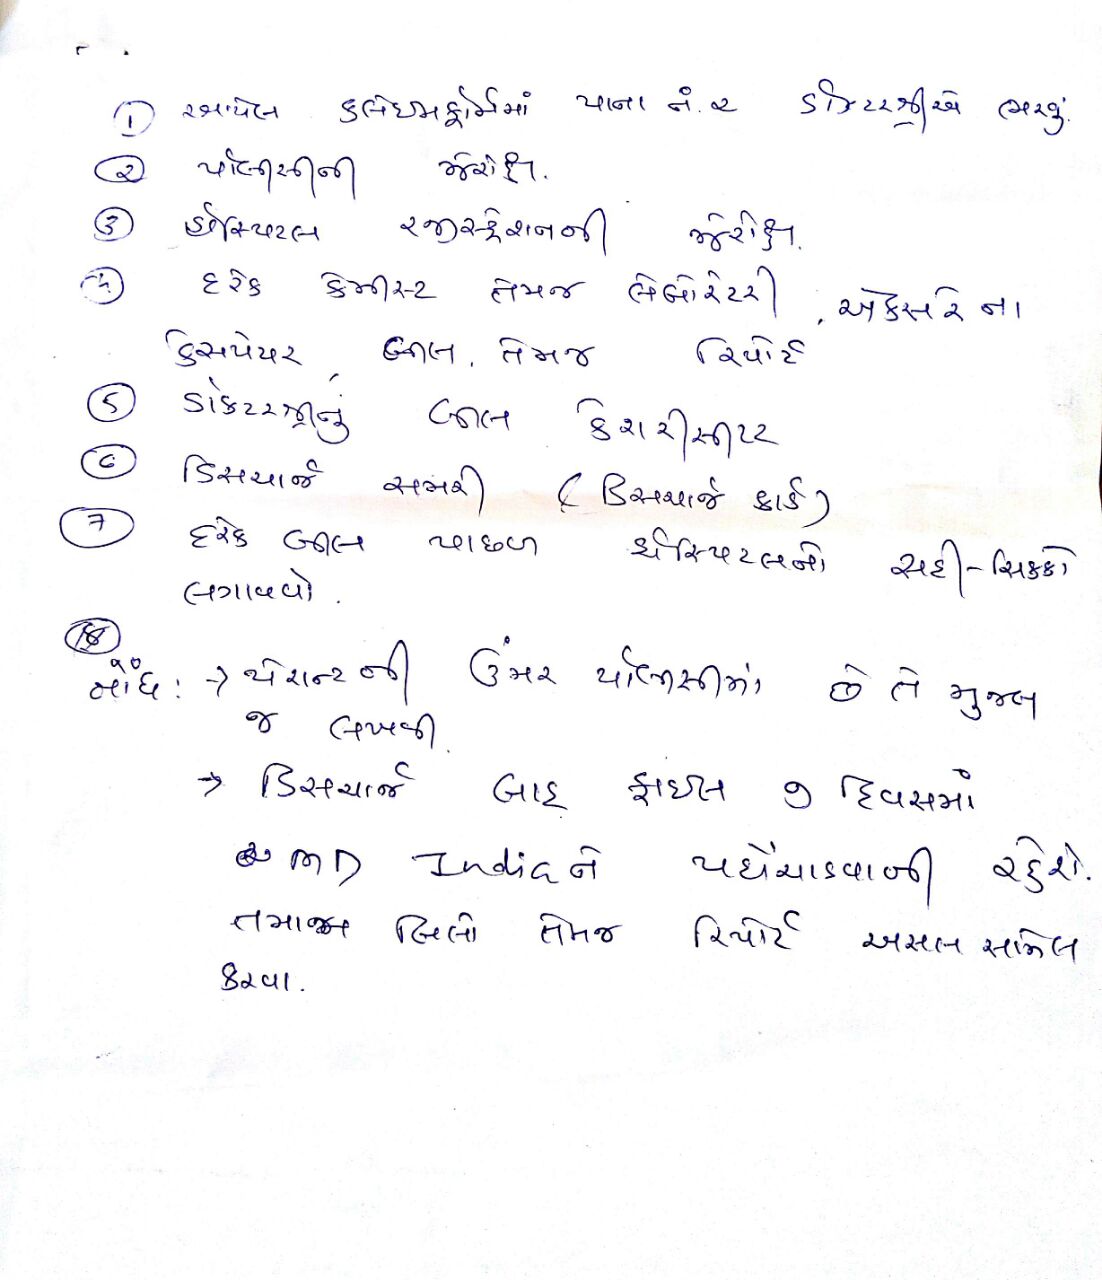 ① આપેલ કલેઇમફોર્મમાં પાના નં. ૨ ડૉક્ટરશ્રીએ ભરવું.
② પોલીસીની ઝેરોક્ષ.
③ હોસ્પિટલ રજીસ્ટ્રેશનની ઝેરોક્ષ.
દરેક કેમીસ્ટ તેમજ લેબોરેટરી, એક્સરે ના
કેસપેપર, બીલ, તેમજ રિપોર્ટ
⑤ ડોકટરશ્રીનું બીલ કેશ રીસીપ્ટ
⑥ ડિસચાર્જ સમરી (ડિસચાર્જ કાર્ડ)
⑦ દરેક બીલ પાછળ હોસ્પિટલનો સહી-સિક્કો
લગાવવો.
નોંધ: → પેશન્ટની ઉંમર પોલીસીમાં છે તે મુજબ
જ લખવી.
→ ડિસચાર્જ બાદ ફાઇલ ૭ દિવસમાં
MD India ને પહોંચાડવાની રહેશે.
તમામ બિલો તેમજ રિપોર્ટ અસલ સામેલ
કરવા.